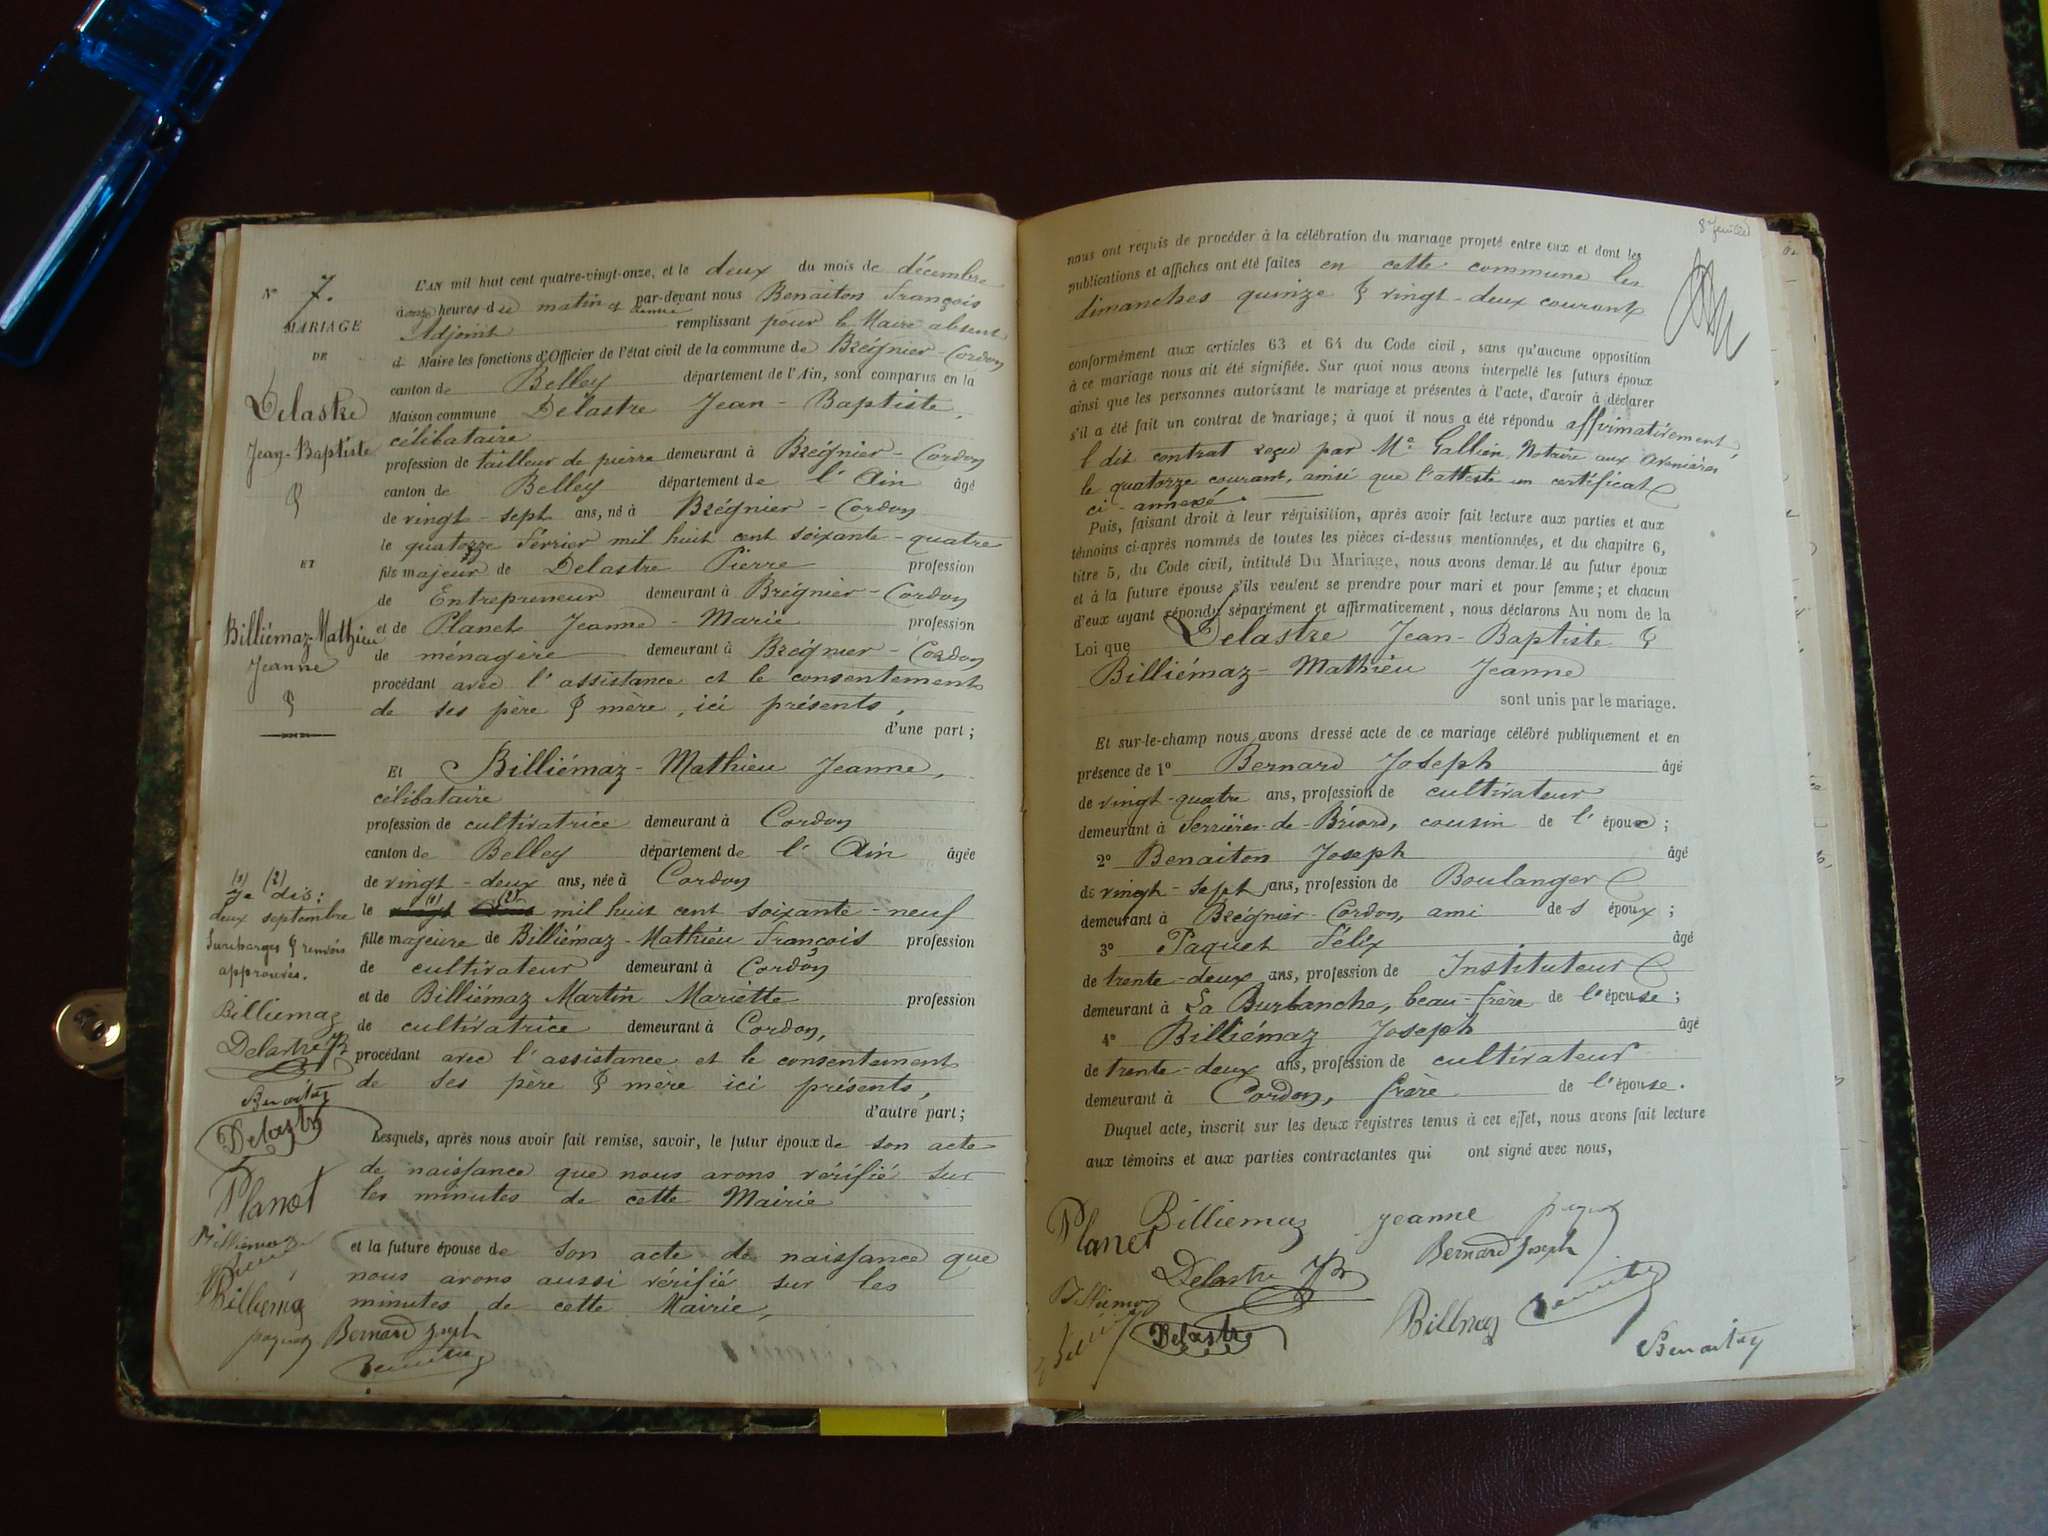 N° 7.
MARIAGE
DE
Delastre
Jean-Baptiste
&
ET
Billiémaz-Mathieu
Jeanne
&
(1) (2)
Je dis:
deux septembre
Surcharges & renvois
approuvés.
Billiemaz
Delastre JB
Benaiton
Delastre
Planet
Billiemaz
Billiemaz
paquet Bernard Joseph
L'AN mil huit cent quatre-vingt-onze, et le deux du mois de décembre
à onze heures du matin et demie par-devant nous Benaiton François
Adjoint remplissant pour le Maire absent
d Maire les fonctions d'Officier de l'état civil de la commune de Brégnier-Cordon
canton de Belley département de l'Ain, sont comparus en la
Maison commune Delastre Jean-Baptiste,
célibataire
profession de tailleur de pierre demeurant à Brégnier-Cordon
canton de Belley département de l'Ain âgé
de vingt-sept ans, né à Brégnier-Cordon
le quatorze Février mil huit cent soixante-quatre
fils majeur de Delastre Pierre profession
de Entrepreneur demeurant à Brégnier-Cordon
et de Planet Jeanne-Marie profession
de ménagère demeurant à Brégnier-Cordon
procédant avec l'assistance et le consentement
de ses père & mère, ici présents,
d'une part;
Et Billiémaz-Mathieu Jeanne,
célibataire
profession de cultivatrice demeurant à Cordon
canton de Belley département de l'Ain âgée
de vingt-deux ans, née à Cordon
le (1) (2) mil huit cent soixante-neuf
fille majeure de Billiémaz-Mathieu François profession
de cultivateur demeurant à Cordon
et de Billiémaz Martin Mariette profession
de cultivatrice demeurant à Cordon,
procédant avec l'assistance et le consentement
de ses père & mère ici présents,
d'autre part;
Lesquels, après nous avoir fait remise, savoir, le futur époux de son acte
de naissance que nous avons vérifié sur
les minutes de cette Mairie
et la future épouse de son acte de naissance que
nous avons aussi vérifié sur les
minutes de cette Mairie,
8e feuillet
nous ont requis de procéder à la célébration du mariage projeté entre eux et dont les
publications et affiches ont été faites en cette commune les
dimanches quinze & vingt-deux courant
conformément aux articles 63 et 64 du Code civil, sans qu'aucune opposition
à ce mariage nous ait été signifiée. Sur quoi nous avons interpellé les futurs époux
ainsi que les personnes autorisant le mariage et présentes à l'acte, d'avoir à déclarer
s'il a été fait un contrat de mariage; à quoi il nous a été répondu affirmativement,
l dit contrat reçu par Me Gallien Notaire aux Avenières
le quatorze courant, ainsi que l'atteste un certificat
ci-annexé.
Puis, faisant droit à leur réquisition, après avoir fait lecture aux parties et aux
témoins ci-après nommés de toutes les pièces ci-dessus mentionnées, et du chapitre 6,
titre 5, du Code civil, intitulé Du Mariage, nous avons demandé au futur époux
et à la future épouse s'ils veulent se prendre pour mari et pour femme; et chacun
d'eux ayant répondu séparément et affirmativement, nous déclarons Au nom de la
Loi que Delastre Jean-Baptiste &
Billiémaz-Mathieu Jeanne
sont unis par le mariage.
Et sur-le-champ nous avons dressé acte de ce mariage célébré publiquement et en
présence de 1° Bernard Joseph âgé
de vingt-quatre ans, profession de cultivateur
demeurant à Serrières-de-Briord, cousin de l'époux;
2° Benaiton Joseph âgé
de vingt-sept ans, profession de Boulanger
demeurant à Brégnier-Cordon, ami des époux;
3° Paquet Félix âgé
de trente-deux ans, profession de Instituteur
demeurant à La Burbanche, beau-frère de l'épouse;
4° Billiémaz Joseph âgé
de trente-deux ans, profession de cultivateur
demeurant à Cordon, frère de l'épouse.
Duquel acte, inscrit sur les deux registres tenus à cet effet, nous avons fait lecture
aux témoins et aux parties contractantes qui ont signé avec nous,
Planet Billiemaz jeanne paquet
Bernard Joseph
Delastre JB
Delastre
Benaiton